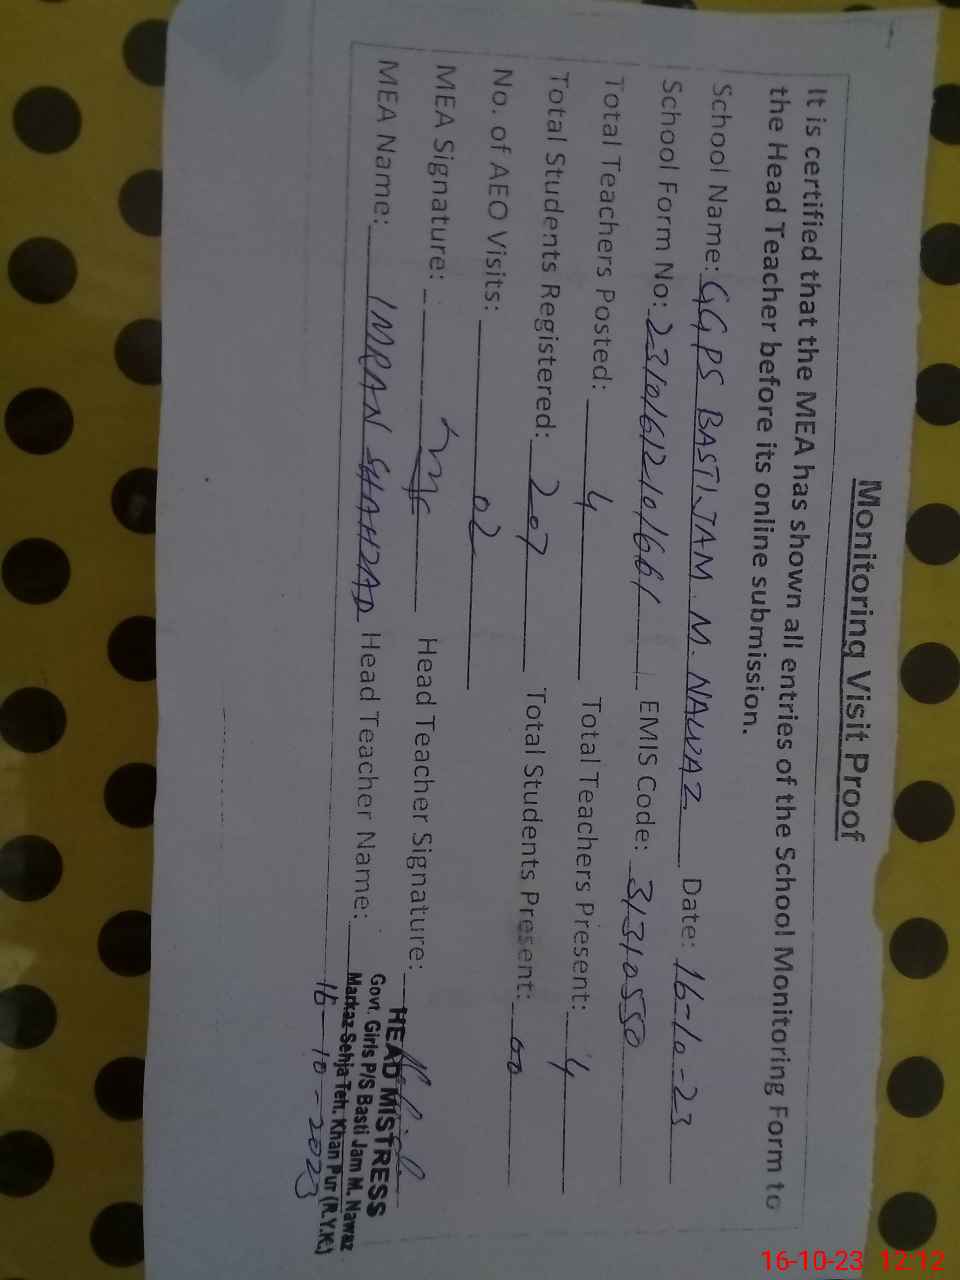 Monitoring Visit Proof
It is certified that the MEA has shown all entries of the School Monitoring Form to
the Head Teacher before its online submission.
School Name: GGPS BASTI JAM M. NAWAZ Date: 16-10-23
School Form No: 23101612101661 EMIS Code: 31310550
Total Teachers Posted: 4 Total Teachers Present: 4
Total Students Registered: 207 Total Students Present: 00
No. of AEO Visits: 02
MEA Signature: Head Teacher Signature:
MEA Name: IMRAN SHAHZAD Head Teacher Name:
HEAD MISTRESS
Govt. Girls P/S Basti Jam M. Nawaz
Markaz Sehja Teh. Khan Pur (R.Y.K)
16-10-2023
16-10-23 12:12